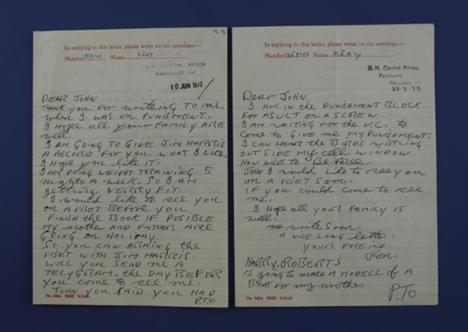 In replying to this letter, please write on the envelope:—
Number Name KRAY
CENTRAL PRISON
10 JUN 1970
DEAR JOHN
THANK YOU FOR WRITEING TO ME,
WHEN I WAS ON PUNISMENT.
I HOPE ALL YOUR FAMILY ARE
WELL
I AM GOING TO GIVE JIM HARRIS
A RECORD FOR YOU. WHAT I LIKE.
I HOPE YOU LIKE IT.
I AM DOING WEIGHT TRAINING 5
NIGHTS A WEEK. SO I AM
GETTING VERY FIT.
I would LIKE TO SEE YOU
ON A VISET BEFOR YOU
FINISH THE BOOK IF POSIBLE
MY mother AND FATHER ARE
GOING ON HOLIDAY.
SO YOU CAN ARAING THE
VISET WITH JIM HARRIS.
WILL YOU SEND ME A
TELYGRAM. THE DAY BEFOR
YOU COME TO SEE ME.
JOHN YOU SAID YOU HAD
P.T.O
In replying to this letter, please write on the envelope:—
Number Name KRAY
H.M. Central Prison,
Parkhurst,
Newport,
DEAR JOHN
I AM IN the PUNISHMENT BLOCK
FOR ASULT ON A SCREW
I AM WAITING FOR the V.C. TO
COME TO GIVE ME MY PUNISHMENT.
I CAN HEAR the BIRDS WISTLING
OUT SIDE MY cell WINDOW
JOHN I would LIKE TO SEE YOU
ON A VISET SOON.
IF YOU COULD COME TO SEE
ME.
I HOPE ALL YOUR FAMILY IS
WELL.
write SOON
A NICE LONG letter.
YOUR FREIND
Ron.
HARRY ROBERTS
IS going to MAKE A MODELL OF A
BOAT FOR MY mother
P.T.O